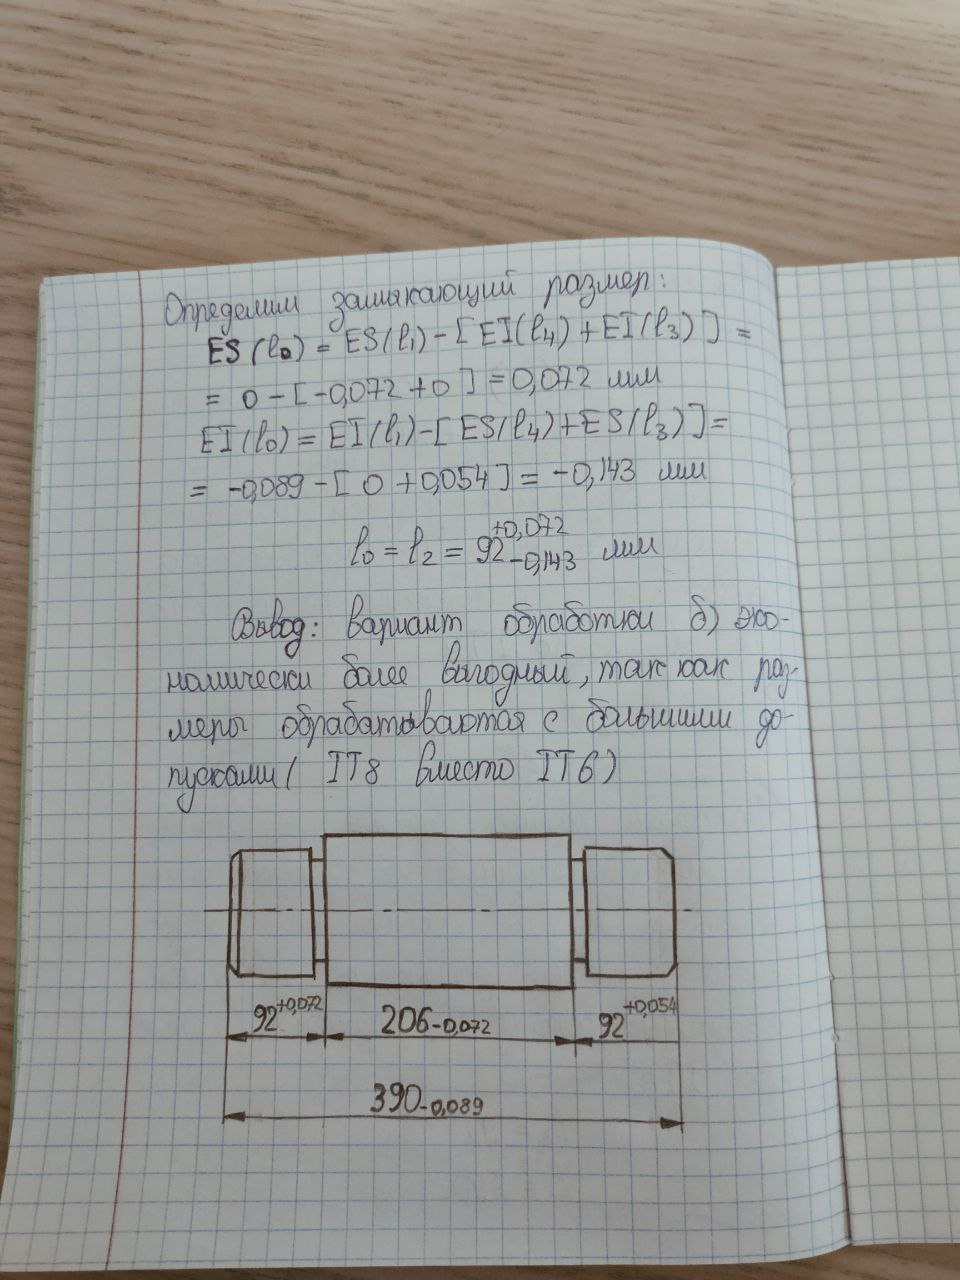 Определим замыкающий размер:
ES(l₀) = ES(l₁) - [EI(l₄) + EI(l₃)] =
= 0 - [-0,072 + 0] = 0,072 мм
EI(l₀) = EI(l₁) - [ES(l₄) + ES(l₃)] =
= -0,089 - [0 + 0,054] = -0,143 мм
l₀ = l₂ = 92 +0,072 -0,143 мм
Вывод: вариант обработки б) эко-
номически более выгодный, так как раз-
меры обрабатываются с большими до-
пусками ( IT8 вместо IT6)
92 +0,072 206 -0,072 92 +0,054
390 -0,089